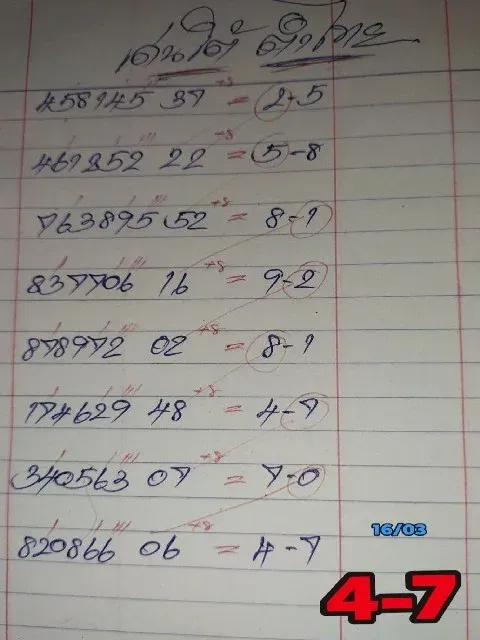 เด่นใต้ ตัวท้าย
458145 37 +8 = 2-5
461252 22 +8 = 5-8
763895 52 +8 = 8-1
837706 16 +8 = 9-2
878972 02 +8 = 8-1
174629 48 +8 = 4-7
340563 07 +8 = 7-0
820866 06 +8 = 4-7
16/03
4-7